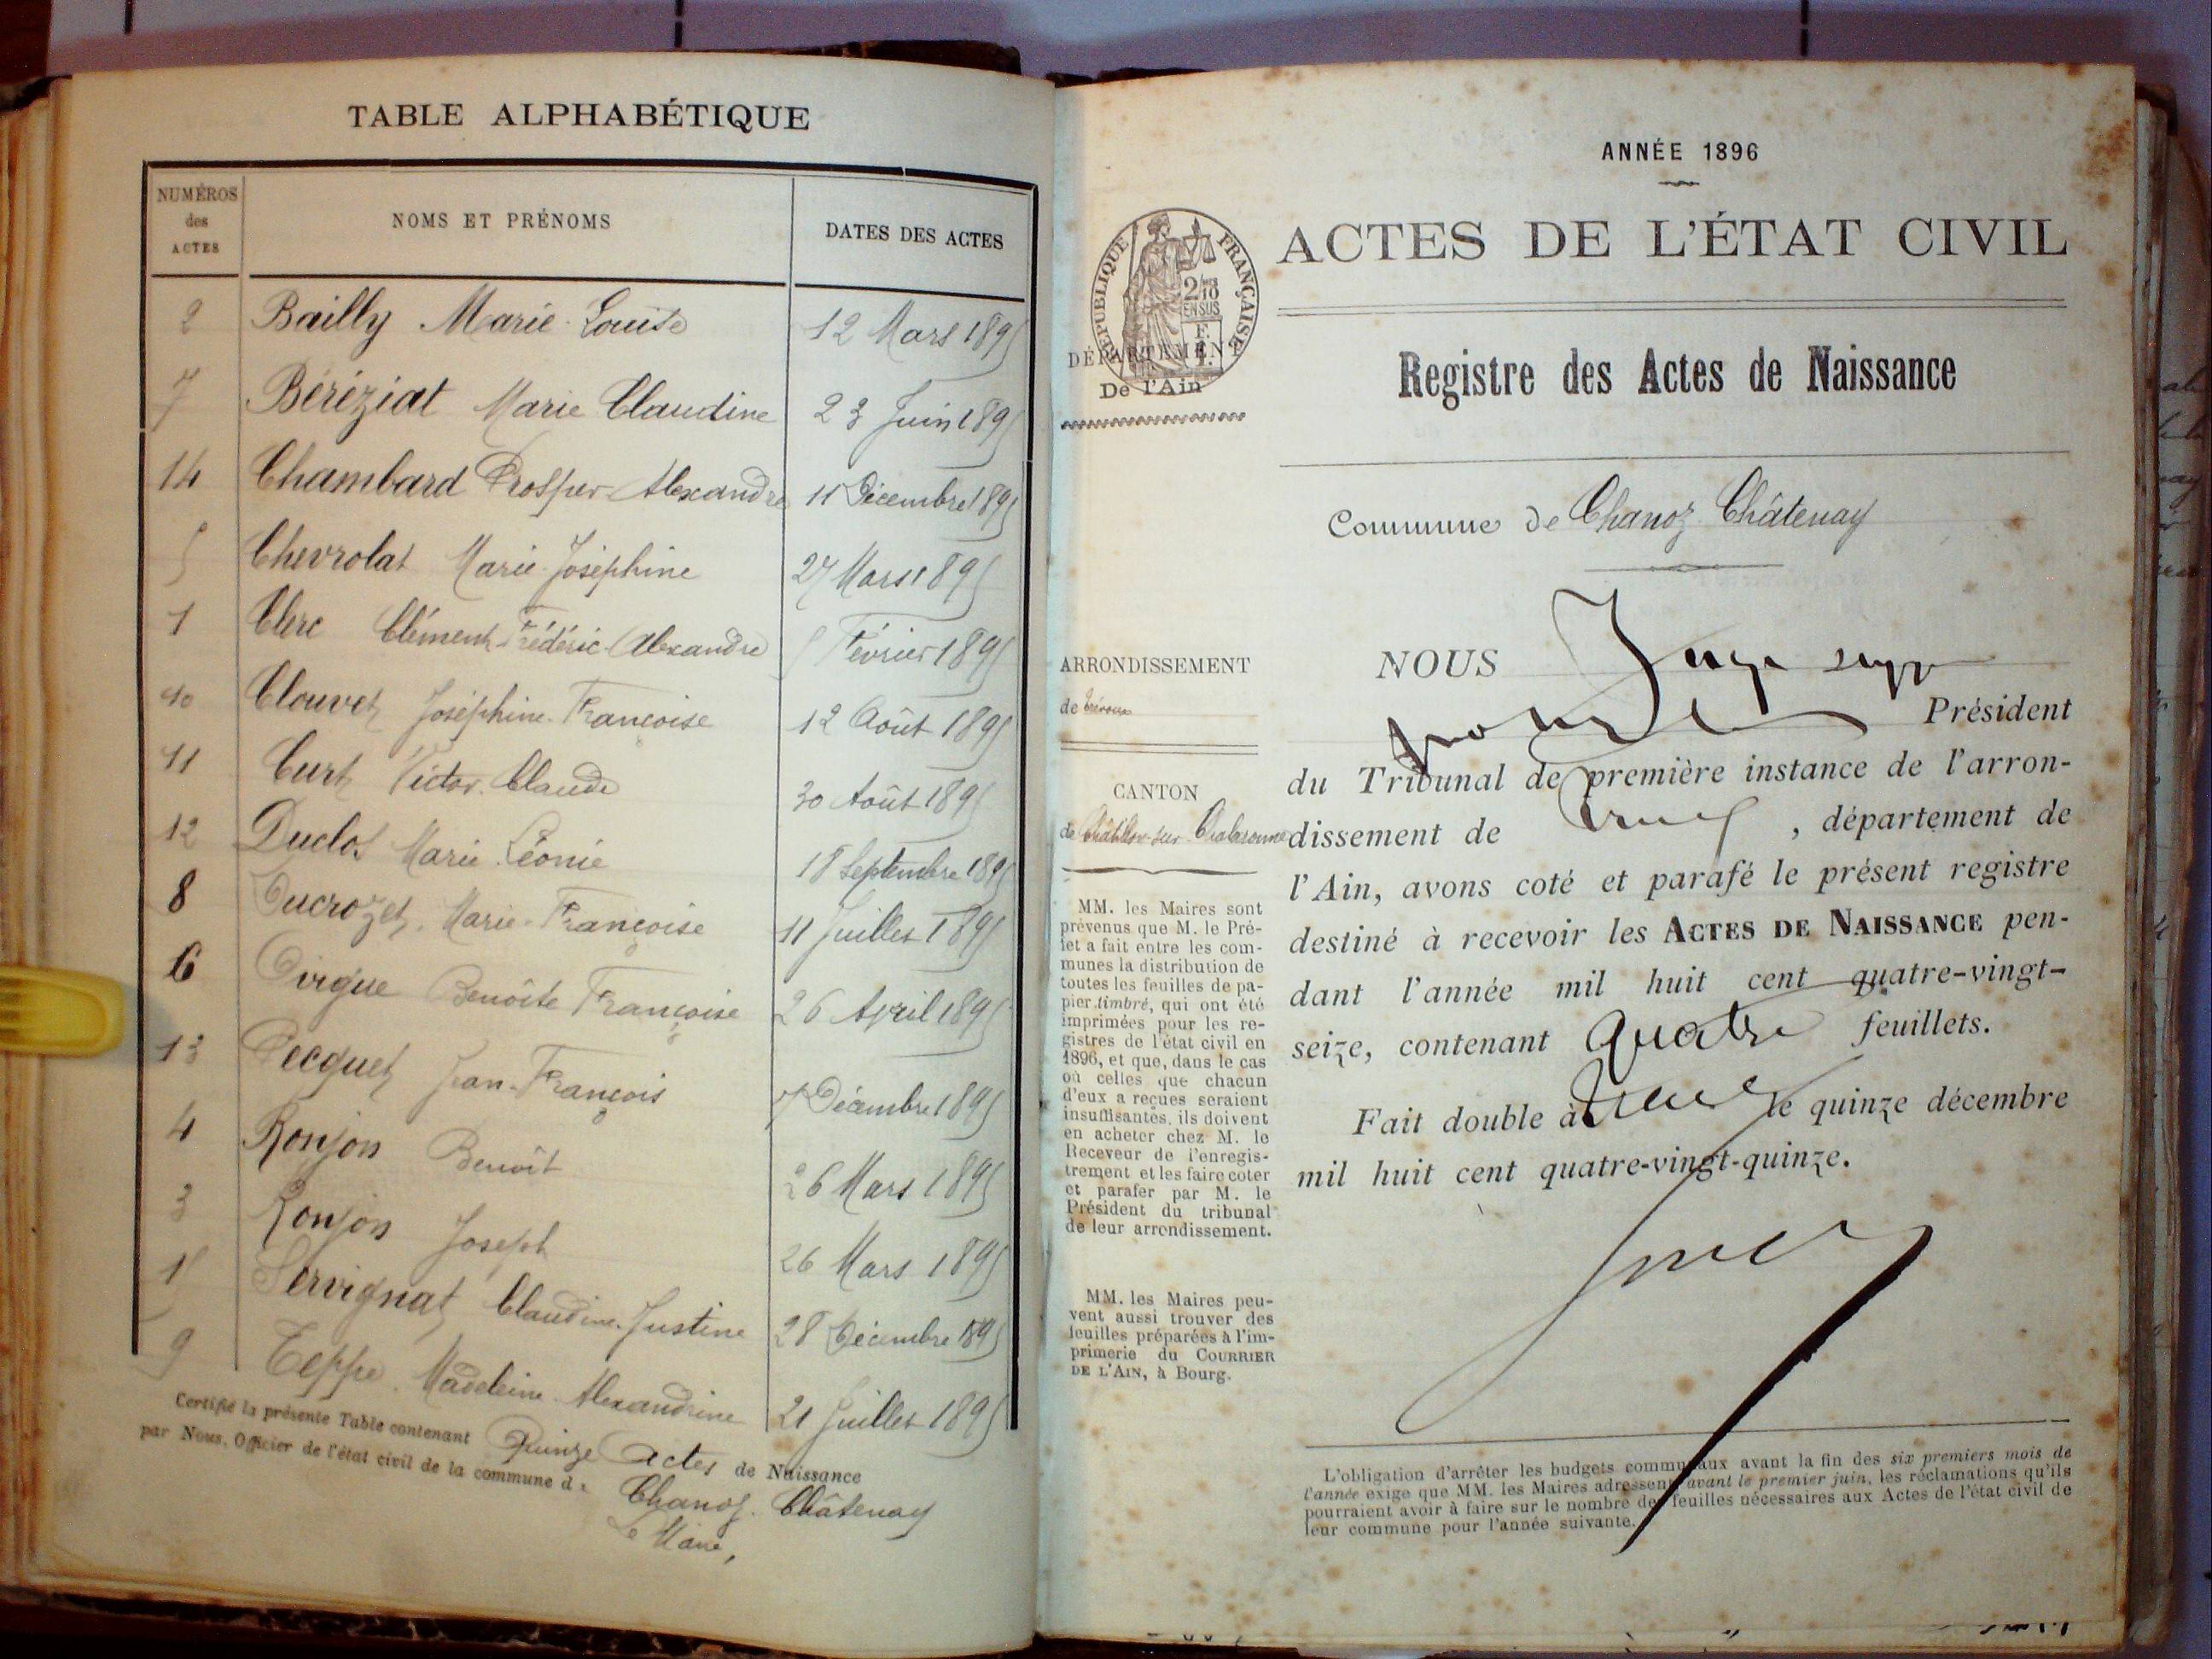 TABLE ALPHABÉTIQUE
NUMÉROS
des
ACTES
NOMS ET PRÉNOMS
DATES DES ACTES
2 Bailly Marie Louise 12 Mars 1895
7 Béréziat Marie Claudine 23 Juin 1895
14 Chambard Prosper Alexandre 11 Décembre 1895
5 Chevrolat Marie Joséphine 27 Mars 1895
1 Clerc Clément Frédéric Alexandre 5 Février 1895
10 Clouvet Joséphine Françoise 12 Août 1895
11 Curt Victor Claude 30 Août 1895
12 Duclos Marie Léonie 18 Septembre 1895
8 Ducrozet Marie Françoise 11 Juillet 1895
6 Benoîte Françoise 26 Avril 1895
13 Pecquet Jean-François 7 Décembre 1895
4 Ronjon Benoît 26 Mars 1895
3 Ronjon Joseph 26 Mars 1895
15 Servignat Claudine Justine 28 Décembre 1895
9 Teppe Madeleine Alexandrine 21 Juillet 1895
Certifié la présente Table contenant Quinze actes de Naissance
par Nous, Officier de l'état civil de la commune de Chanoz Châtenay
Le Maire,
ANNÉE 1896
ACTES DE L'ÉTAT CIVIL
RÉPUBLIQUE FRANÇAISE
2/10
EN SUS
DÉPARTEMENT
De l'Ain
Registre des Actes de Naissance
Commune de Chanoz Châtenay
ARRONDISSEMENT
de Trévoux
CANTON
de Châtillon-sur-Chalaronne
MM. les Maires sont
prévenus que M. le Pré-
fet a fait entre les com-
munes la distribution de
toutes les feuilles de pa-
pier timbré, qui ont été
imprimées pour les re-
gistres de l'état civil en
1896, et que, dans le cas
où celles que chacun
d'eux a reçues seraient
insuffisantes, ils doivent
en acheter chez M. le
Receveur de l'enregis-
trement et les faire coter
et parafer par M. le
Président du tribunal
de leur arrondissement.
MM. les Maires peu-
vent aussi trouver des
feuilles préparées à l'im-
primerie du COURRIER
DE L'AIN, à Bourg.
NOUS Juge supp
pour le Président
du Tribunal de première instance de l'arron-
dissement de , département de
l'Ain, avons coté et parafé le présent registre
destiné à recevoir les ACTES DE NAISSANCE pen-
dant l'année mil huit cent quatre-vingt-
seize, contenant Quatre feuillets.
Fait double à le quinze décembre
mil huit cent quatre-vingt-quinze.
L'obligation d'arrêter les budgets communaux avant la fin des six premiers mois de
l'année exige que MM. les Maires adressent avant le premier juin, les réclamations qu'ils
pourraient avoir à faire sur le nombre des feuilles nécessaires aux Actes de l'état civil de
leur commune pour l'année suivante.